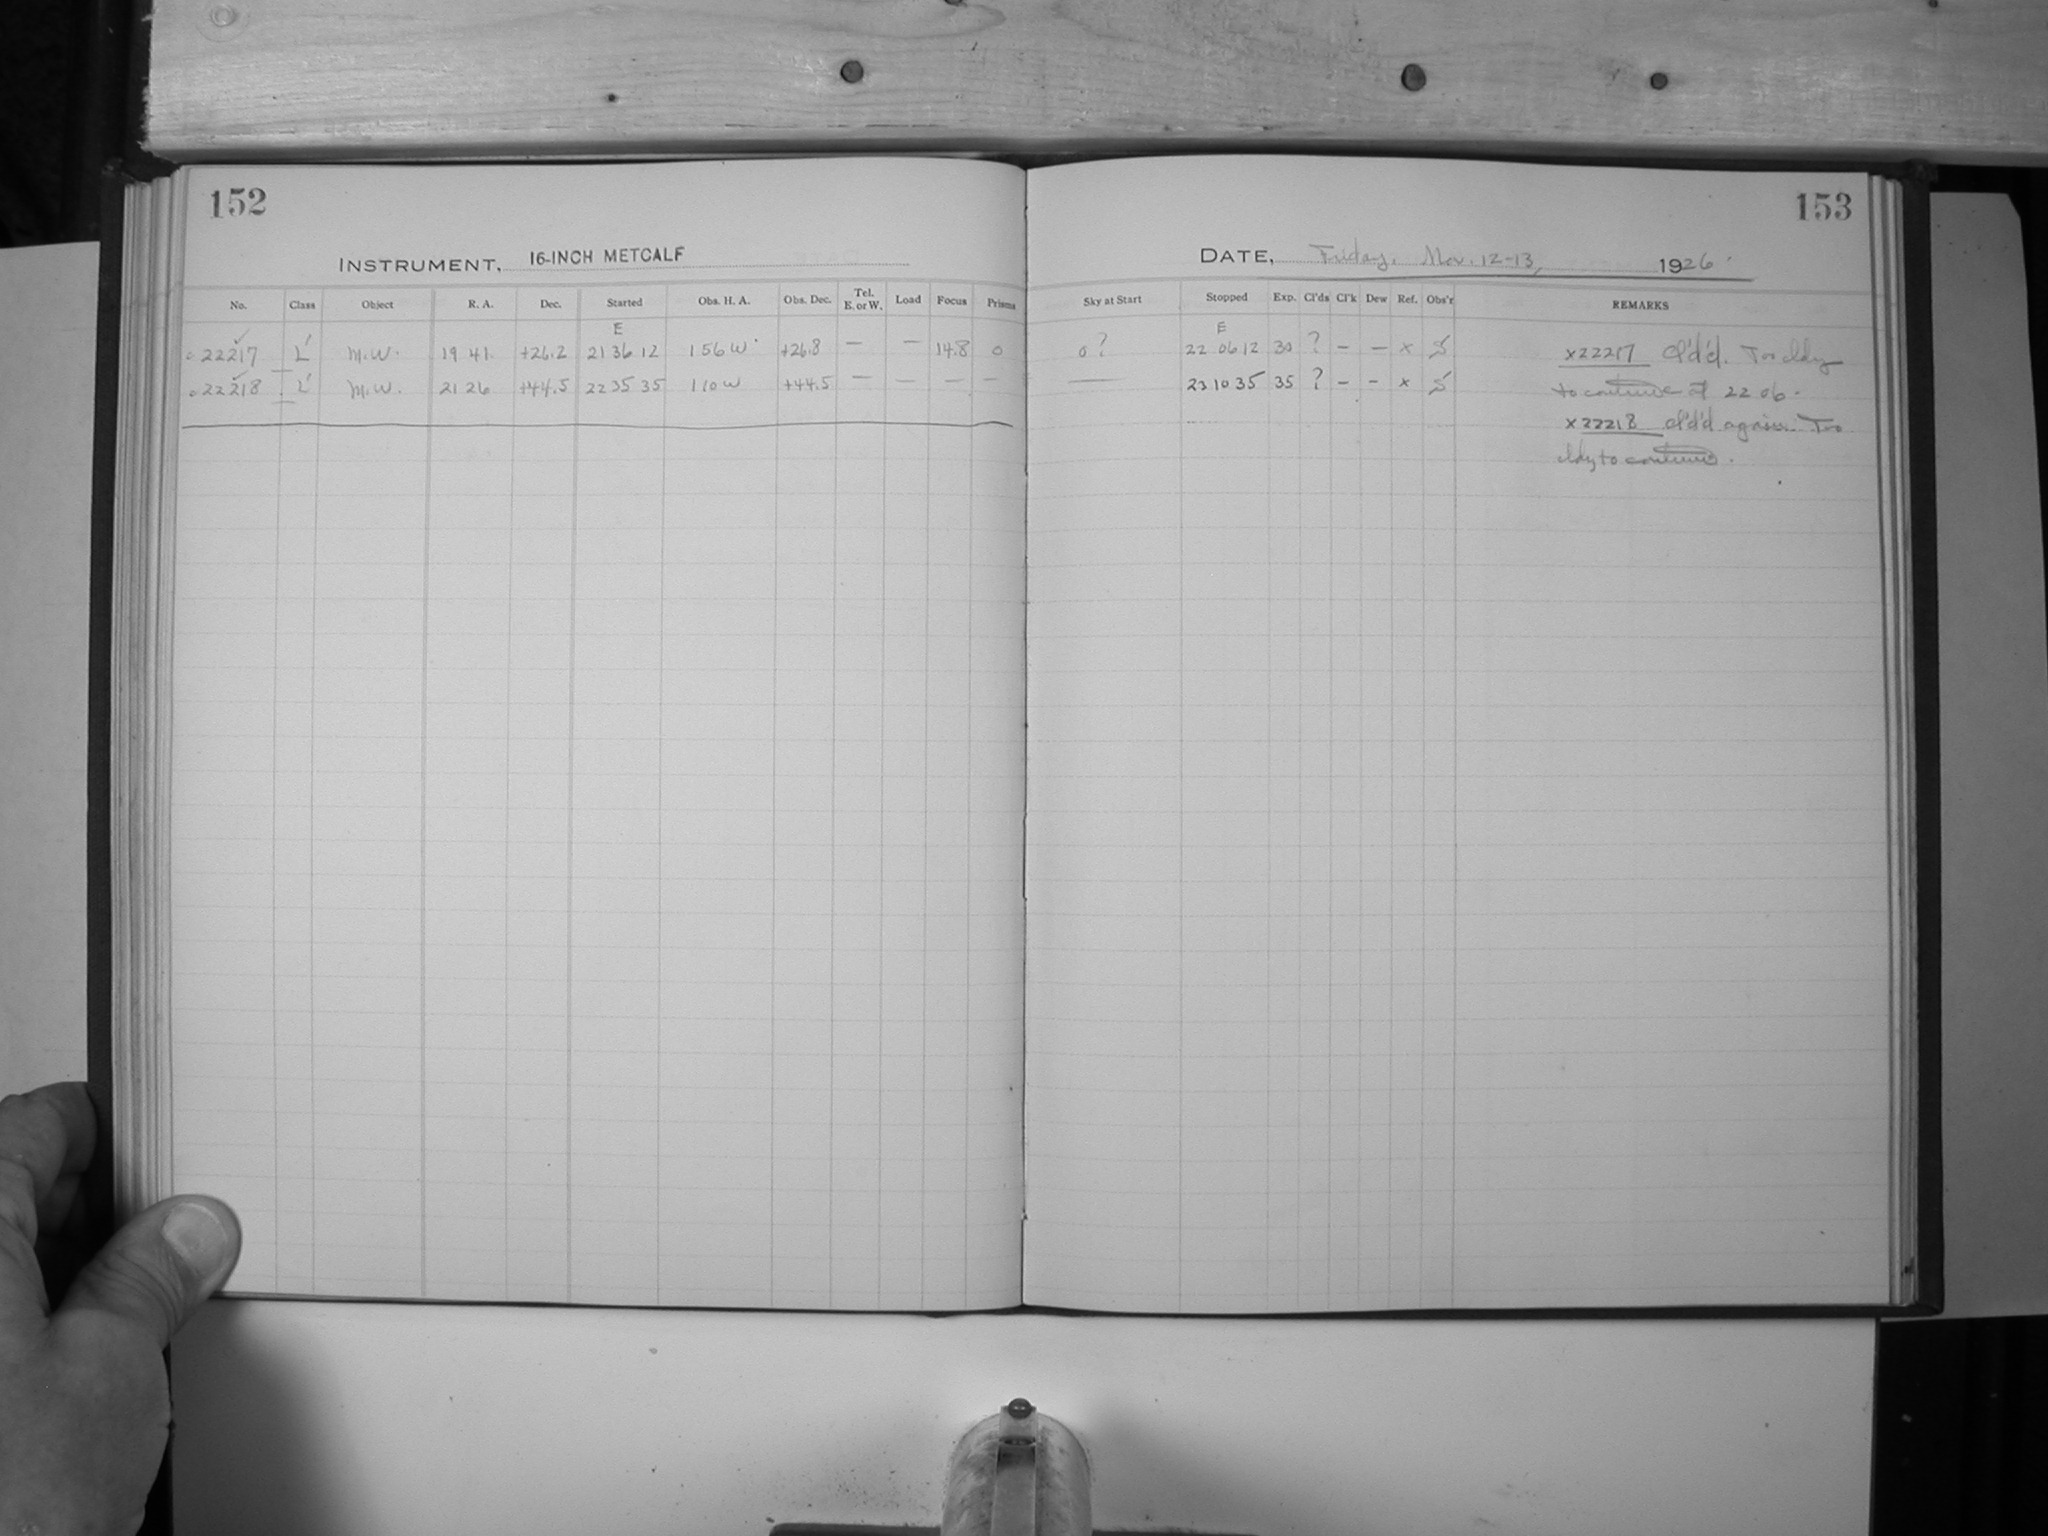 152
INSTRUMENT, 16-INCH METCALF
No. Class Object R. A. Dec. Started Obs. H. A. Obs. Dec. Tel. E. or W. Load Focus Prisms
E
22217 L' M.W. 19 41 +26.2 21 36 12 1 56 W +26.8 — — 14.8 0
22218 L' M.W. 21 26 +44.5 22 35 35 1 10 W +44.5 — — — —
153
DATE, Friday, Nov. 12-13, 1926
Sky at Start Stopped Exp. Cl'ds Cl'k Dew Ref. Obs'r REMARKS
E
0? 22 06 12 30 ? — — x S x22217 Cl'd'd. Too cldy
to continue at 22 06.
— 23 10 35 35 ? — — x S
x22218 Cl'd'd again. Too
cldy to continue.